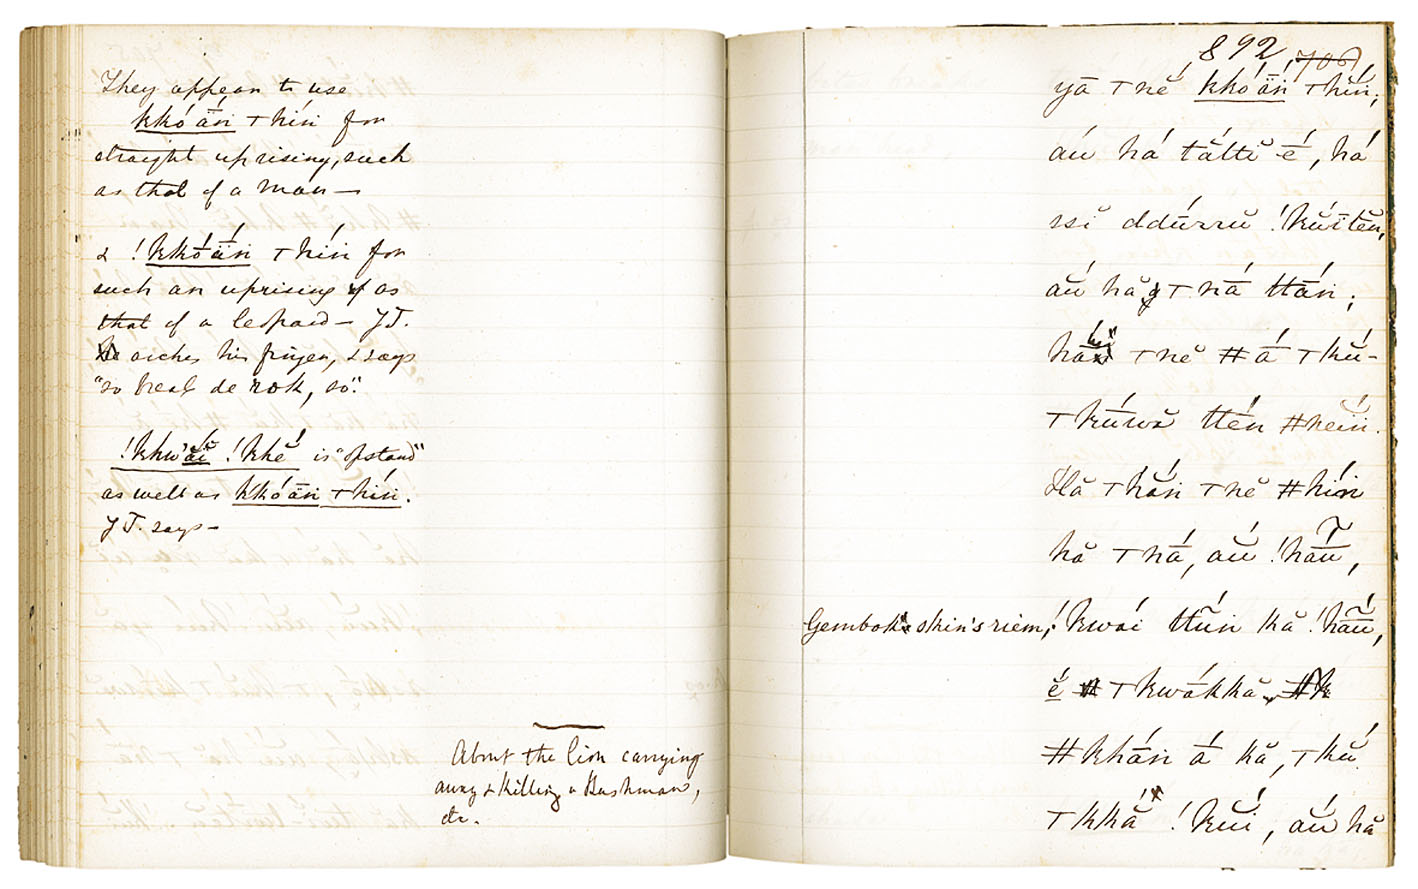 They appear to use
kkó ā́n ⊤hín for
straight uprising, such
as that of a man —
& !kkó ā́n ⊤hín for
such an uprising as
that of a leopard — J.T.
arches his finger, & says
"so break de rok, so".
!khwāĭ !khĕ́ is "opstand"
as well as kkó ā́n ⊤hín.
J.T. says —
About the lion carrying
away & killing a Bushman,
&c.
892 706
yā ⊤nĕ́ kkó ā́n ⊤hín;
áu há tátti é, há
ssĭ ddúrru !kúĭtĕn,
áu hă ⊤ná ttā́n;
⊤nĕ #ā́ ⊤kú-
⊤kúwă ttén #nein.
Há ⊤hắn ⊤nĕ #hín
hă ⊤nā́, aŭ́ !hā́u,
Gembok skin's riem, !kwái ttū́n kă !hā́u,
é ⊤kwákkă,
#khā́n ā́ kă, ⊤kŭ́
⊤kkắ !kúi, áu hă